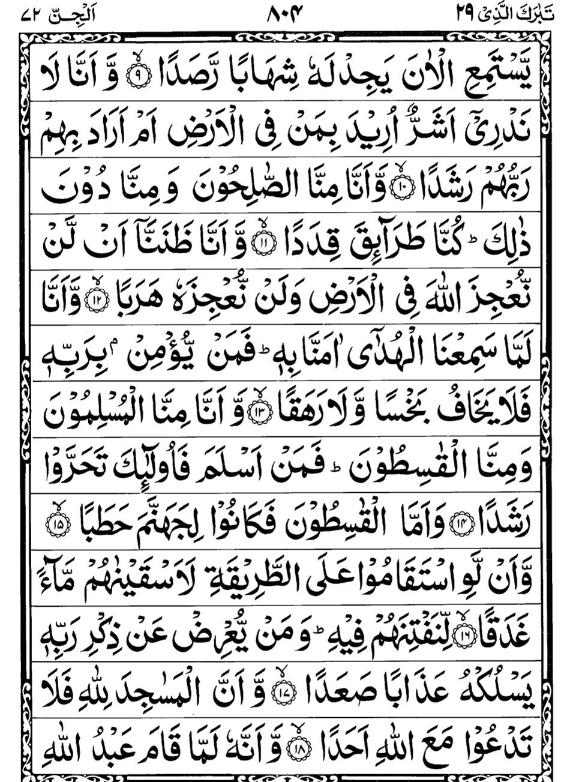 تَبٰرَكَ الَّذِیْ ٢٩ ٨٠٤ اَلْجِنّ ٧٢
يَّسْتَمِعِ الْاٰنَ يَجِدْ لَهٗ شِهَابًا رَّصَدًا ۙ٩ وَّ اَنَّا لَا
نَدْرِىْٓ اَشَرٌّ اُرِيْدَ بِمَنْ فِى الْاَرْضِ اَمْ اَرَادَ بِهِمْ
رَبُّهُمْ رَشَدًا ۙ١٠ وَّاَنَّا مِنَّا الصّٰلِحُوْنَ وَ مِنَّا دُوْنَ
ذٰلِكَ ؕ كُنَّا طَرَآئِقَ قِدَدًا ۙ١١ وَّ اَنَّا ظَنَنَّاۤ اَنْ لَّنْ
نُّعْجِزَ اللّٰهَ فِى الْاَرْضِ وَلَنْ نُّعْجِزَهٗ هَرَبًا ۙ١٢ وَّاَنَّا
لَمَّا سَمِعْنَا الْهُدٰٓى اٰمَنَّا بِهٖ ؕ فَمَنْ يُّؤْمِنْۢ بِرَبِّهٖ
فَلَا يَخَافُ بَخْسًا وَّ لَا رَهَقًا ۙ١٣ وَّ اَنَّا مِنَّا الْمُسْلِمُوْنَ
وَمِنَّا الْقٰسِطُوْنَ ؕ فَمَنْ اَسْلَمَ فَاُولٰٓئِكَ تَحَرَّوْا
رَشَدًا ١٤ وَاَمَّا الْقٰسِطُوْنَ فَكَانُوْا لِجَهَنَّمَ حَطَبًا ۙ١٥
وَّاَنْ لَّوِ اسْتَقَامُوْا عَلَى الطَّرِيْقَةِ لَاَسْقَيْنٰهُمْ مَّآءً
غَدَقًا ۙ١٦ لِّنَفْتِنَهُمْ فِيْهِ ؕ وَ مَنْ يُّعْرِضْ عَنْ ذِكْرِ رَبِّهٖ
يَسْلُكْهُ عَذَابًا صَعَدًا ۙ١٧ وَّ اَنَّ الْمَسٰجِدَ لِلّٰهِ فَلَا
تَدْعُوْا مَعَ اللّٰهِ اَحَدًا ۙ١٨ وَّ اَنَّهٗ لَمَّا قَامَ عَبْدُ اللّٰهِ